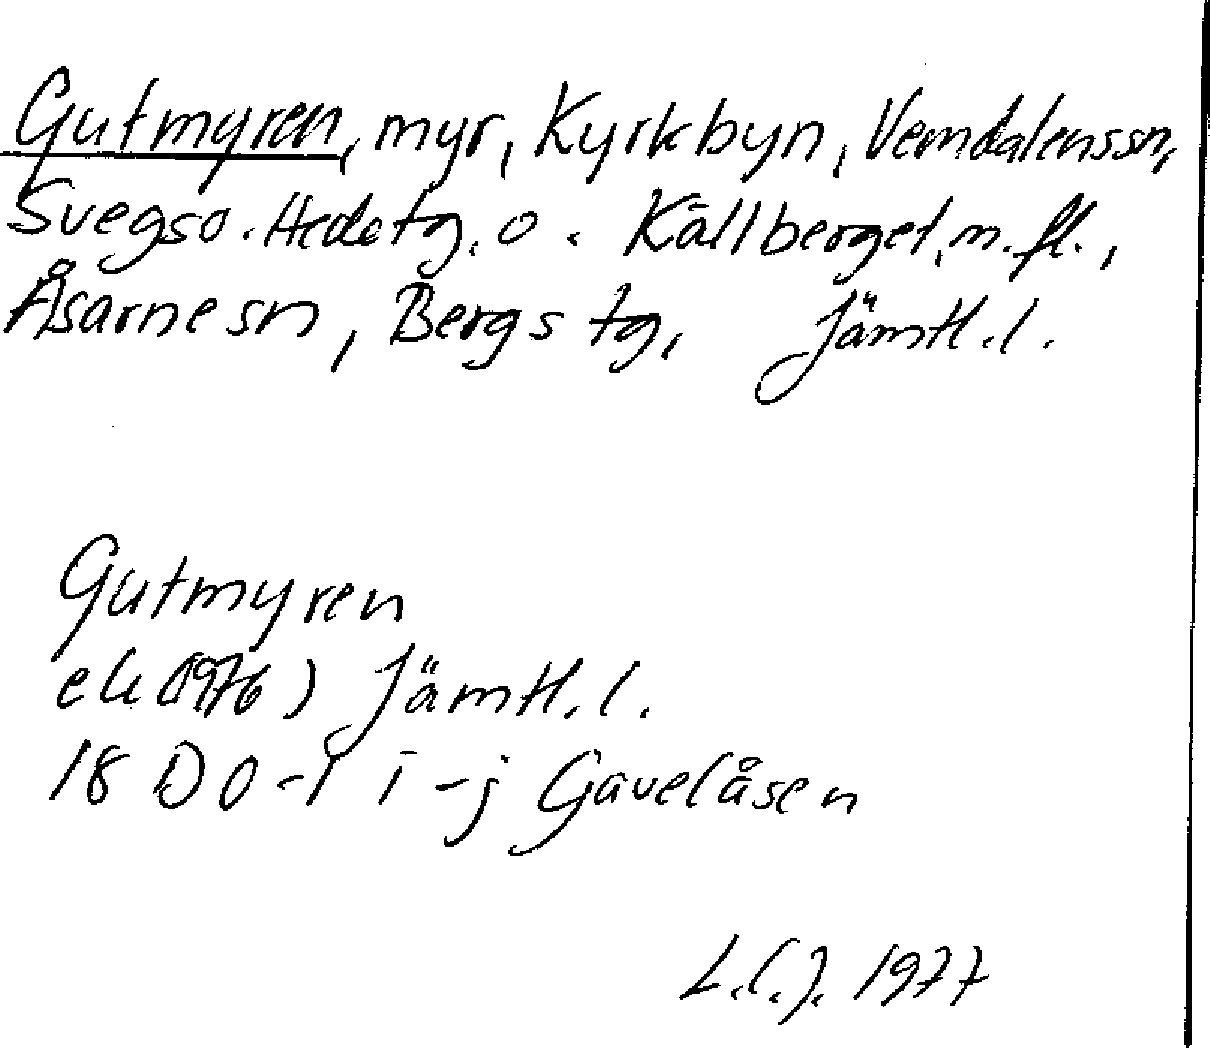 Gutmyren, myr, Kyrkbyn, Vemdalenssn,
Svegs o. Hede tg. o. Källberget, m.fl.,
Åsarne sn, Bergs tg, Jämtl.l.
Gutmyren
ek (1976) Jämtl.l.
18 D 0-1 i-j Gåvelåsen
L.(.). 1977